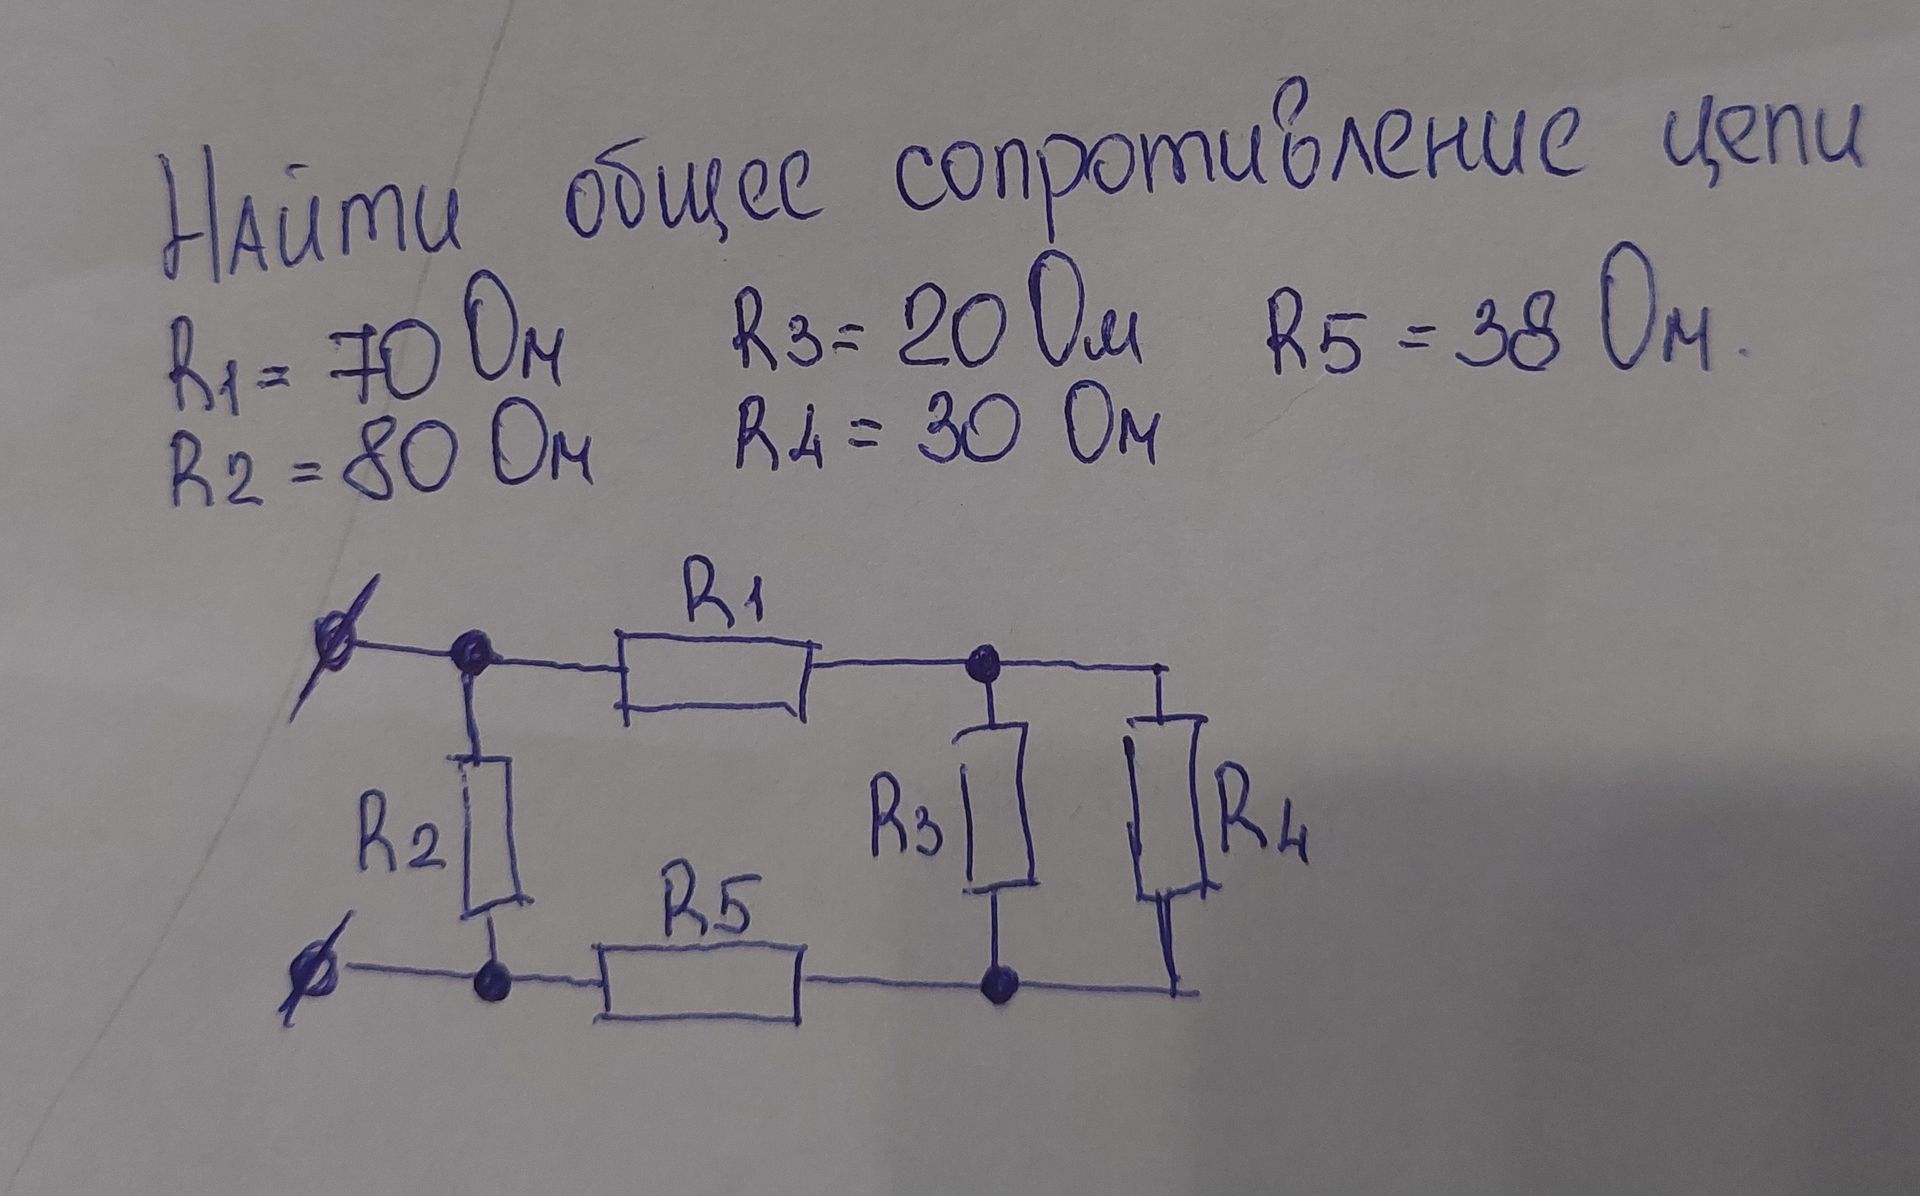 Найти общее сопротивление цепи
R1 = 70 Ом R3 = 20 Ом R5 = 38 Ом.
R2 = 80 Ом R4 = 30 Ом
R1
R2 R3 R4
R5